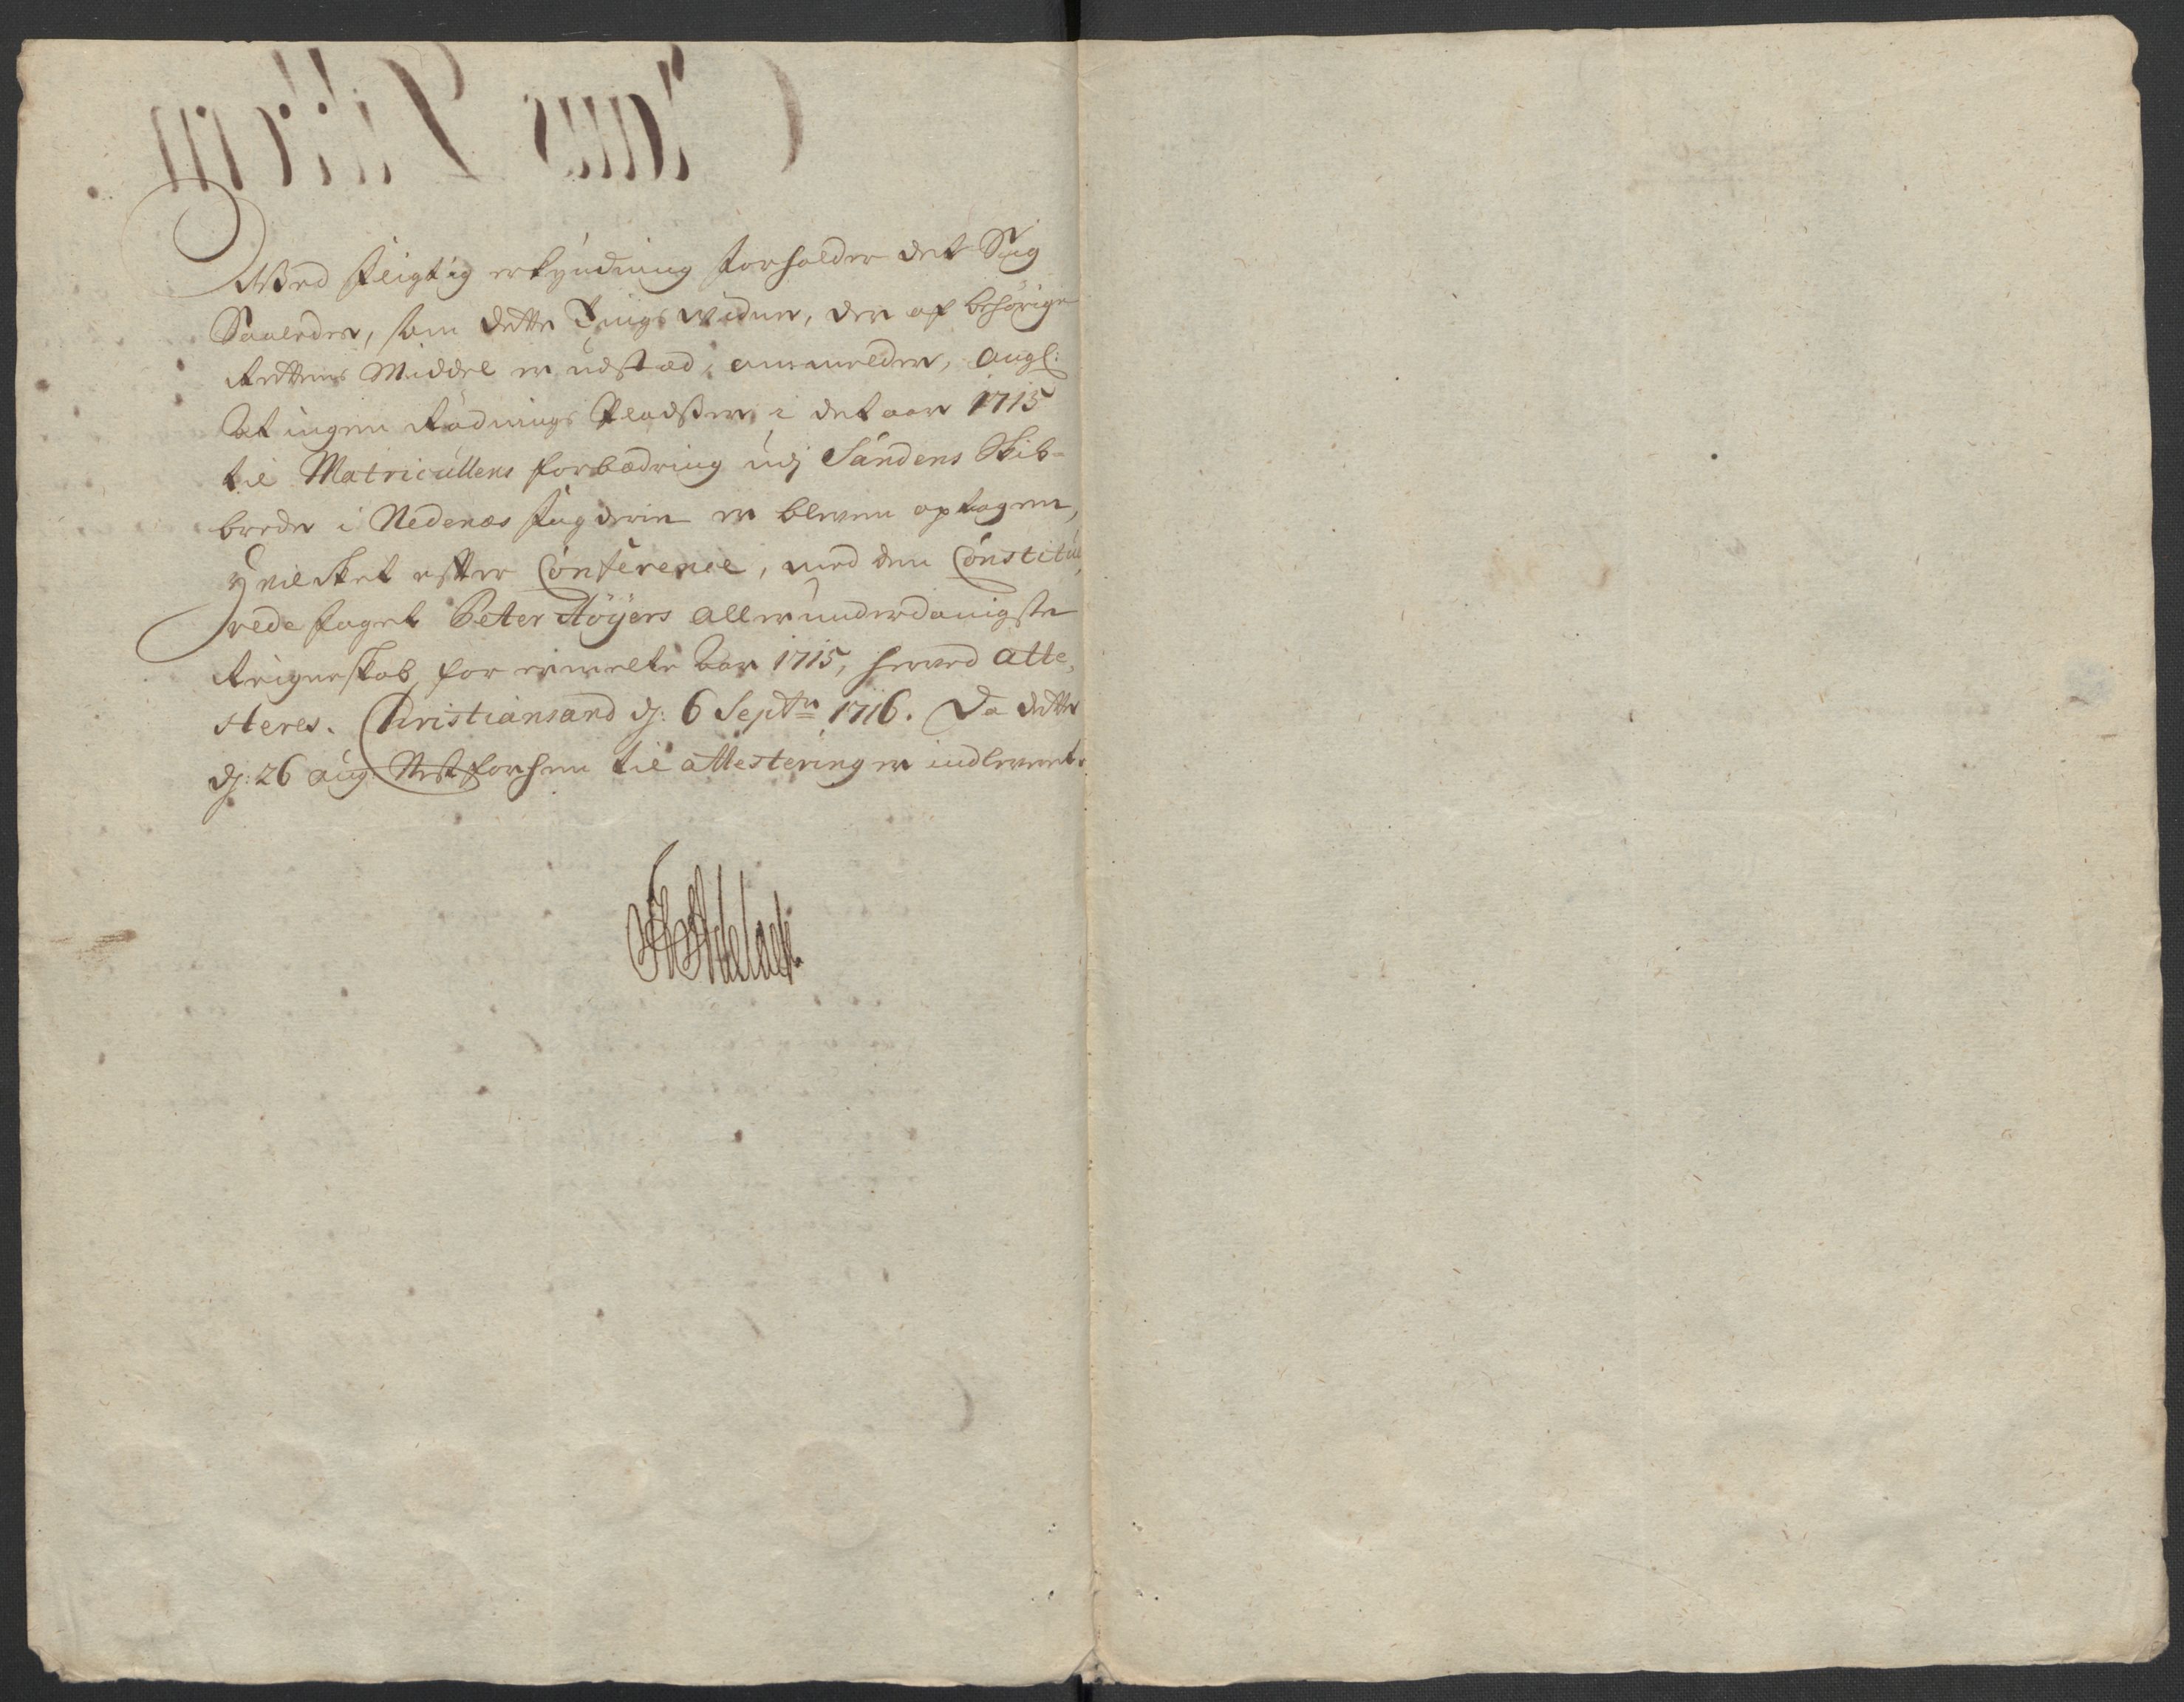 Wed fligtig erkyndning forholder det Sig
Saaledes, som dette Tings widne, der af behörige
Rettens Middel er udstæd, ommelder, angl:
At ingen Rödnings Pladßer i det aar 1715
til Matricullens forbædring udj Sandens Skib-
brede i Nedenæs fugderie er bleven optagen,
Hvilcket efter Conference, med den Constitu,
rede foget Peter Höyers allerunderdanigste
Reigneskab for ermelte Aar 1715, herved atte,
steres. Christiansand dj: 6 Septr 1716. Da dette
dj: 26 aug: Nestforhen til attestering er indlevert.